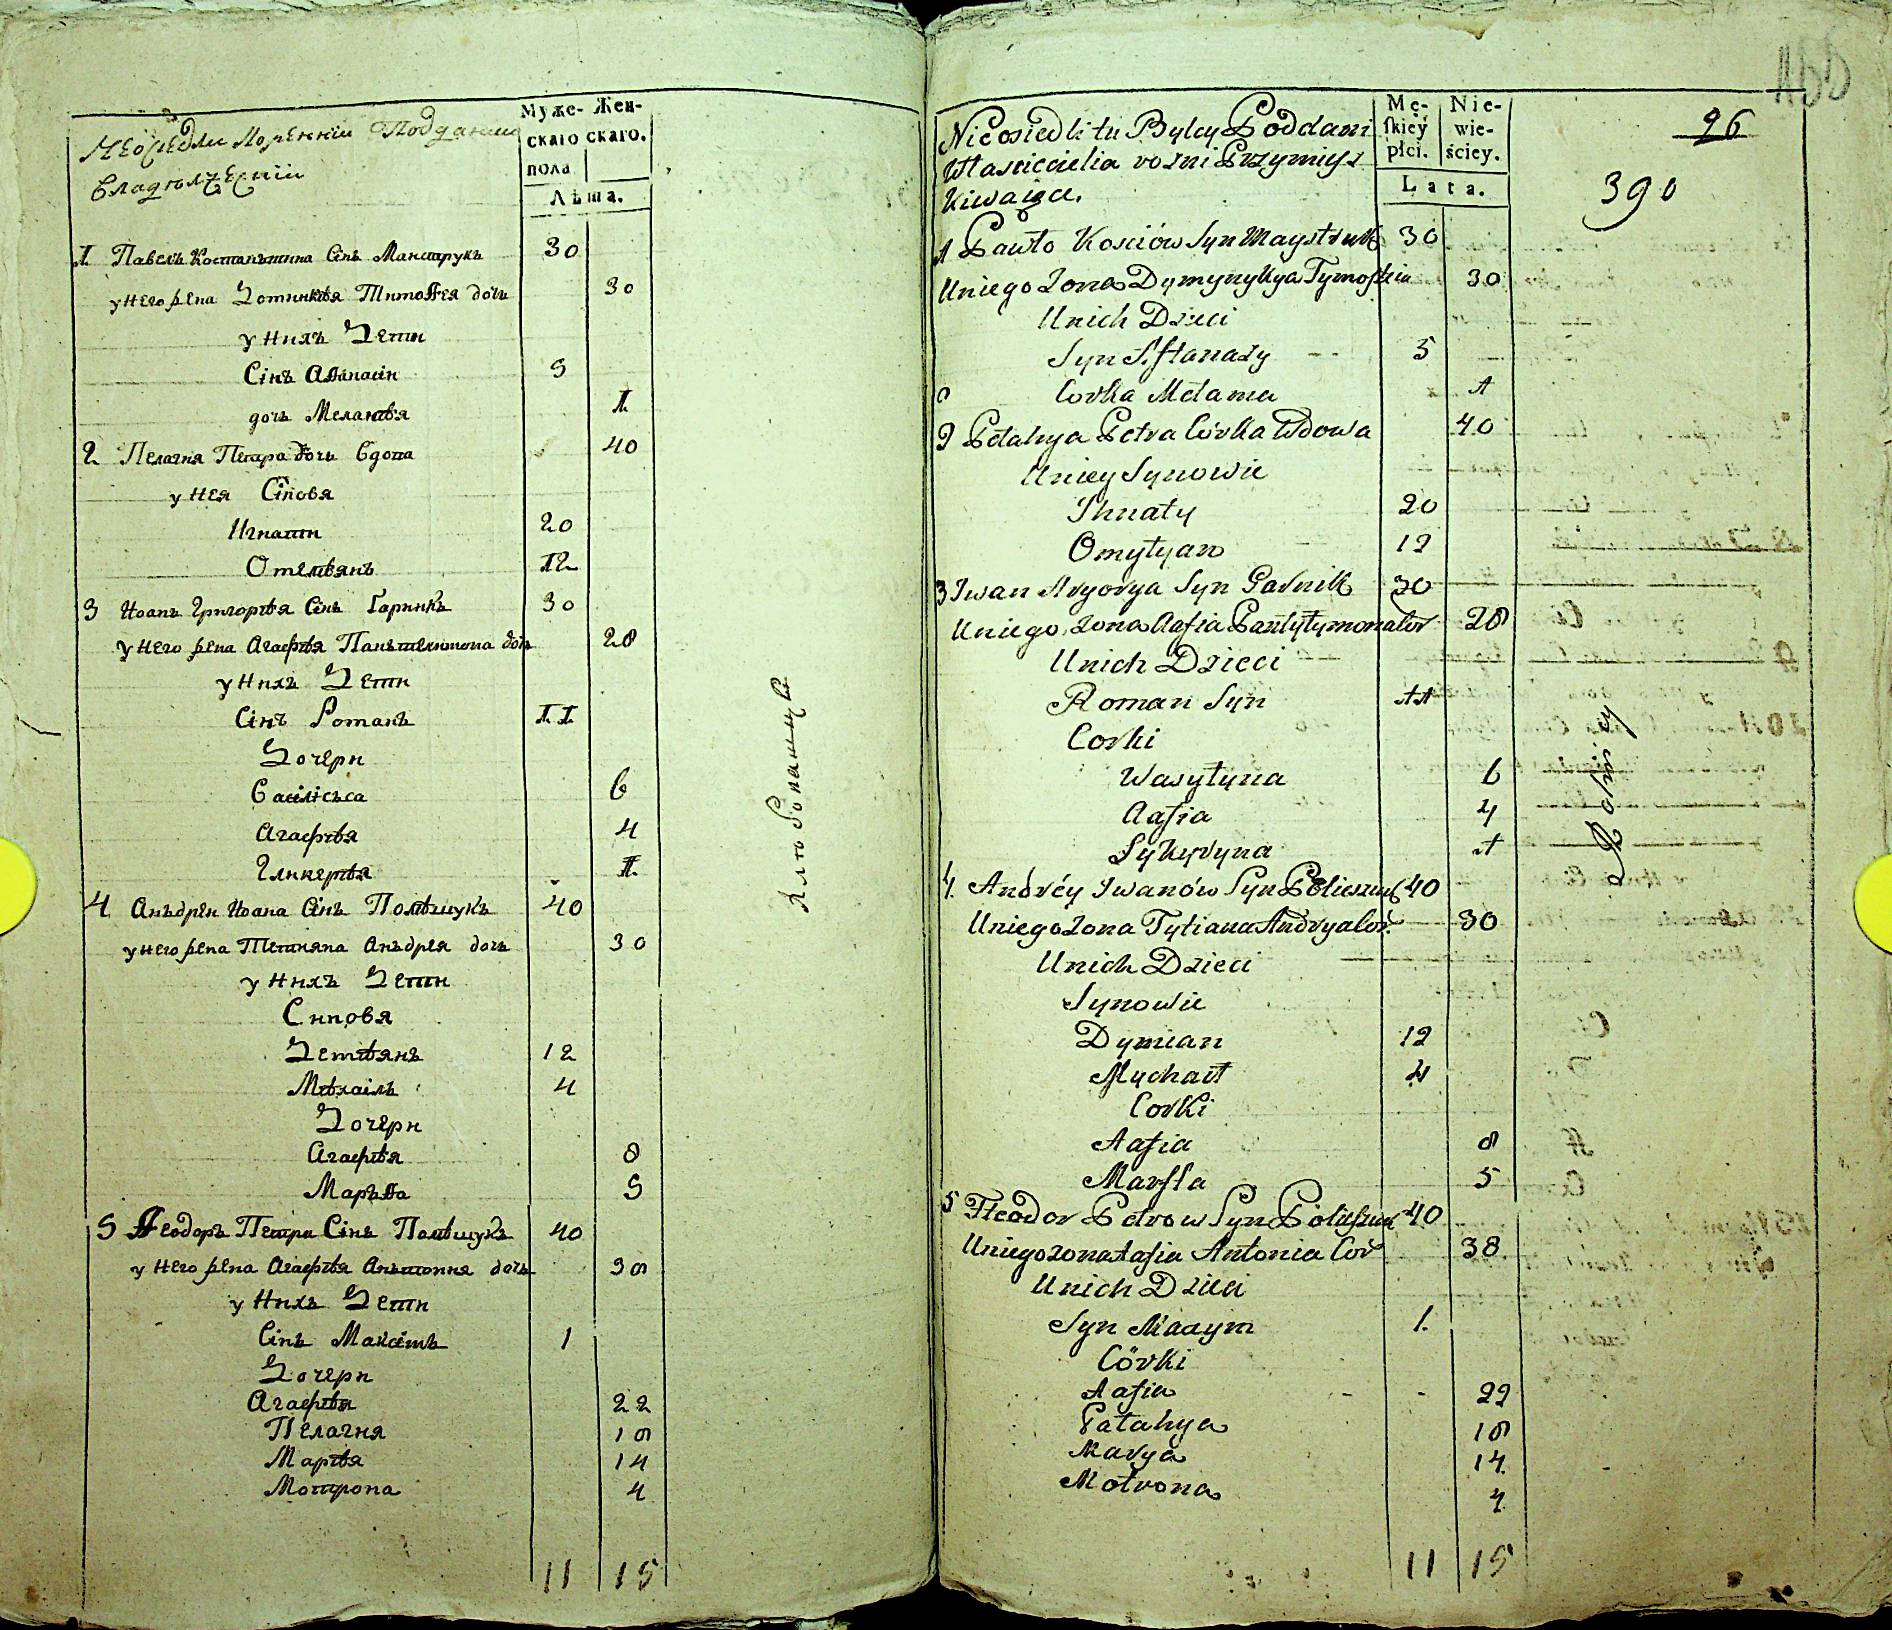 Муже- Жен-
скаго скаго.
пола
Лѣта.
1 Павелъ Костанътина Сінъ Мансарукъ 30
у него жена Домникѣя Тимоѳея дочь 30
у нихъ Дети
Сінъ Аѳанасіи 5
дочь Меланѣя 1
2 Пелагия Петра дочь Вдова 40
у нея Сіновя
Игнати 20
Омелѣянъ 12
3 Иоанъ Григорѣя Сінъ Гарникъ 30
у него жена Агафѣя дочь 28
у нихъ Дети
Сінъ Романъ 11
Дочери
Васіліса 6
Агафѣя 4
Гликерѣя 1
4 Анъдреи Иоана Сінъ Полѣщукъ 40
у него жена Тетияна Анъдрея дочь 30
у нихъ Дети
Синовя
Демѣянъ 12
Мѣхаілъ 4
Дочери
Агафѣя 8
Маръѳа 5
5 Ѳеодоръ Петра Сінъ Полѣщукъ 40
у него жена Агафѣя Анътония дочь 38
у нихъ Дети
Сінъ Максімъ 1
Дочери
Агафѣя 22
Пелагия 18
Марѣя 14
Мотрона 4
11 15
Nieosiedli tu Bylcy Poddani
Własciciela rozni Przymiesz
kiwaiąc.
Mę- Nie-
skiey wie-
płci. ściey.
Lata.
26
390
1 Pawło Kosciów Syn Maystruk 30
Uniego Zona Dymynykya Tymofieia 30
Unich Dzieci
Syn Aftanazy 5
Corka Melania 1
2 Pelahya Petra Córka Wdowa 40
Uniey Synowie
Ihnaty 20
Omylyan 12
3 Iwan Hryorya Syn Garnik 30
Uniego Zona Aafia Pantylymona Cor 28
Unich Dzieci
Roman Syn 11
Corki
Wasylyna 6
Aafia 4
Łykyryna 1
4. Andréy Iwanów Syn Polieszuk 40
Uniego Zona Tytiana Andrya Cor. 30
Unich Dzieci
Synowie
Dymian 12
Mychaił 4
Corki
Aafia 8
Marfta 5
5 Fteodor Petrow Syn Poliszuk 40
Uniego zona Aafia Antonia Cor 38
Unich Dzieci
Syn Maxym 1.
Córki
Aafia 22
Palahya 18
Marya 14
Motrona 4
11 15